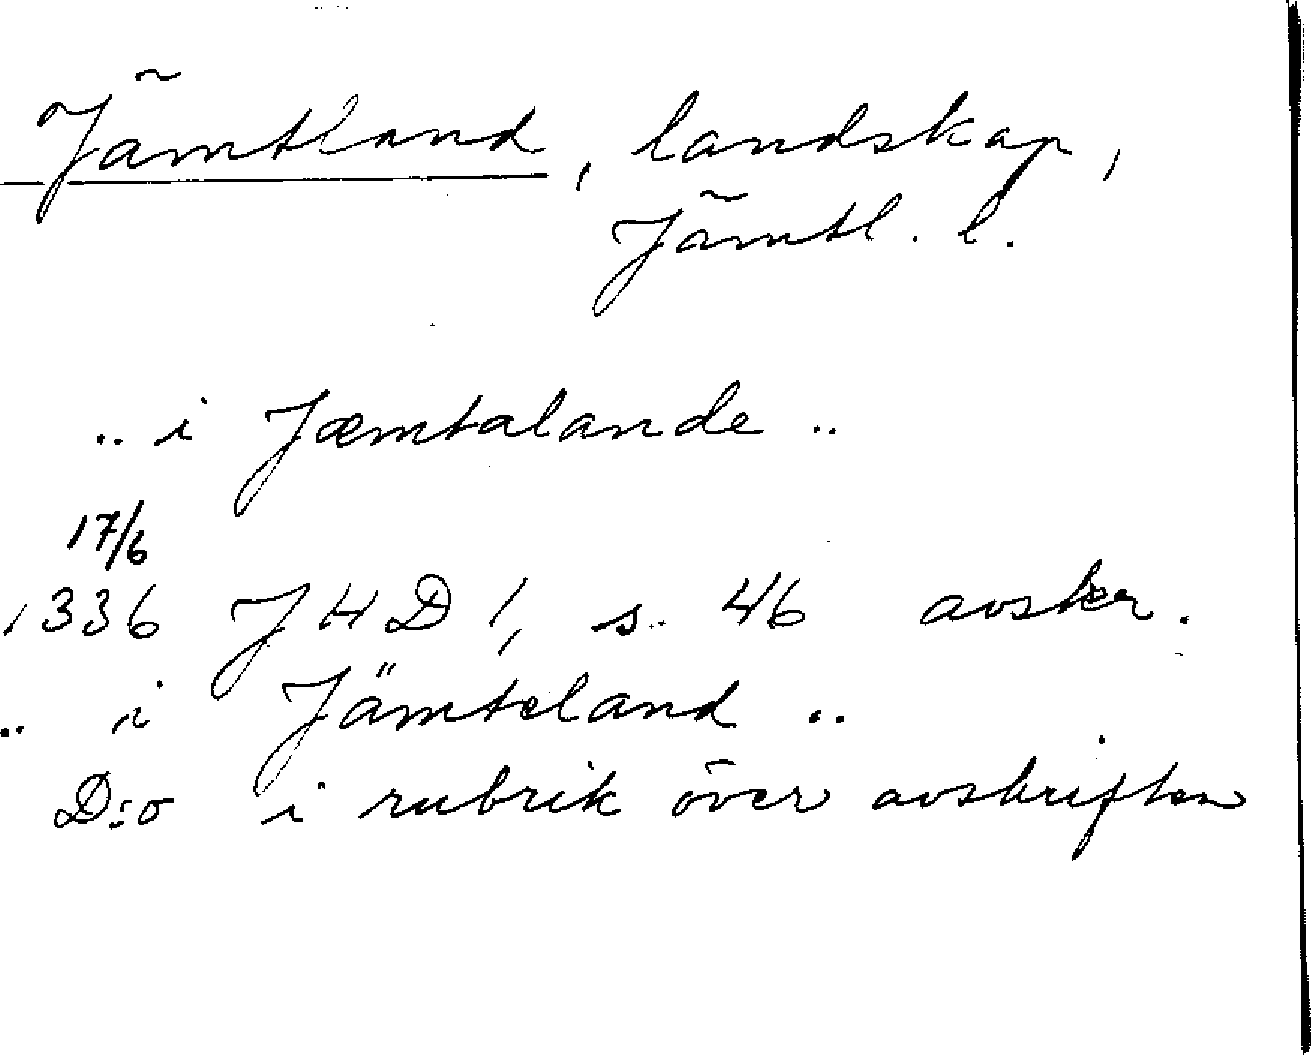 Jämtland, landskap,
Jämtl. l.
.. i Jæmtalande ..
17/6
1336 JHD 1, s. 46 avskr.
.. i Jämteland ..
D:o i rubrik över avskriften